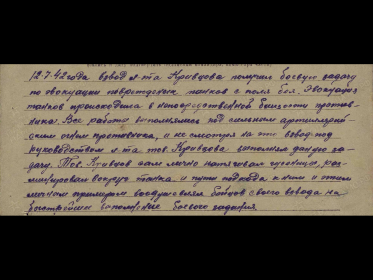 12.7.42 года взвод л-та Кривцова получил боевую задачу
по эвакуации повреждених танков с поля боя. Эвакуация
танков происходила в непосредственной близости против-
ника. Все работы выполнялись под сильным артиллерий-
ским огнем противника, и не смотря на это взвод под
руководством л-та тов. Кривцова выполнил данную за-
дачу. Тов. Кривцов сам лично натягивал гусеницы, раз-
минировал вокруг танка и пути подхода к ним и этим
личным примером воодушевлял бойцов своего взвода на
быстрейшее выполнение боевого задания.